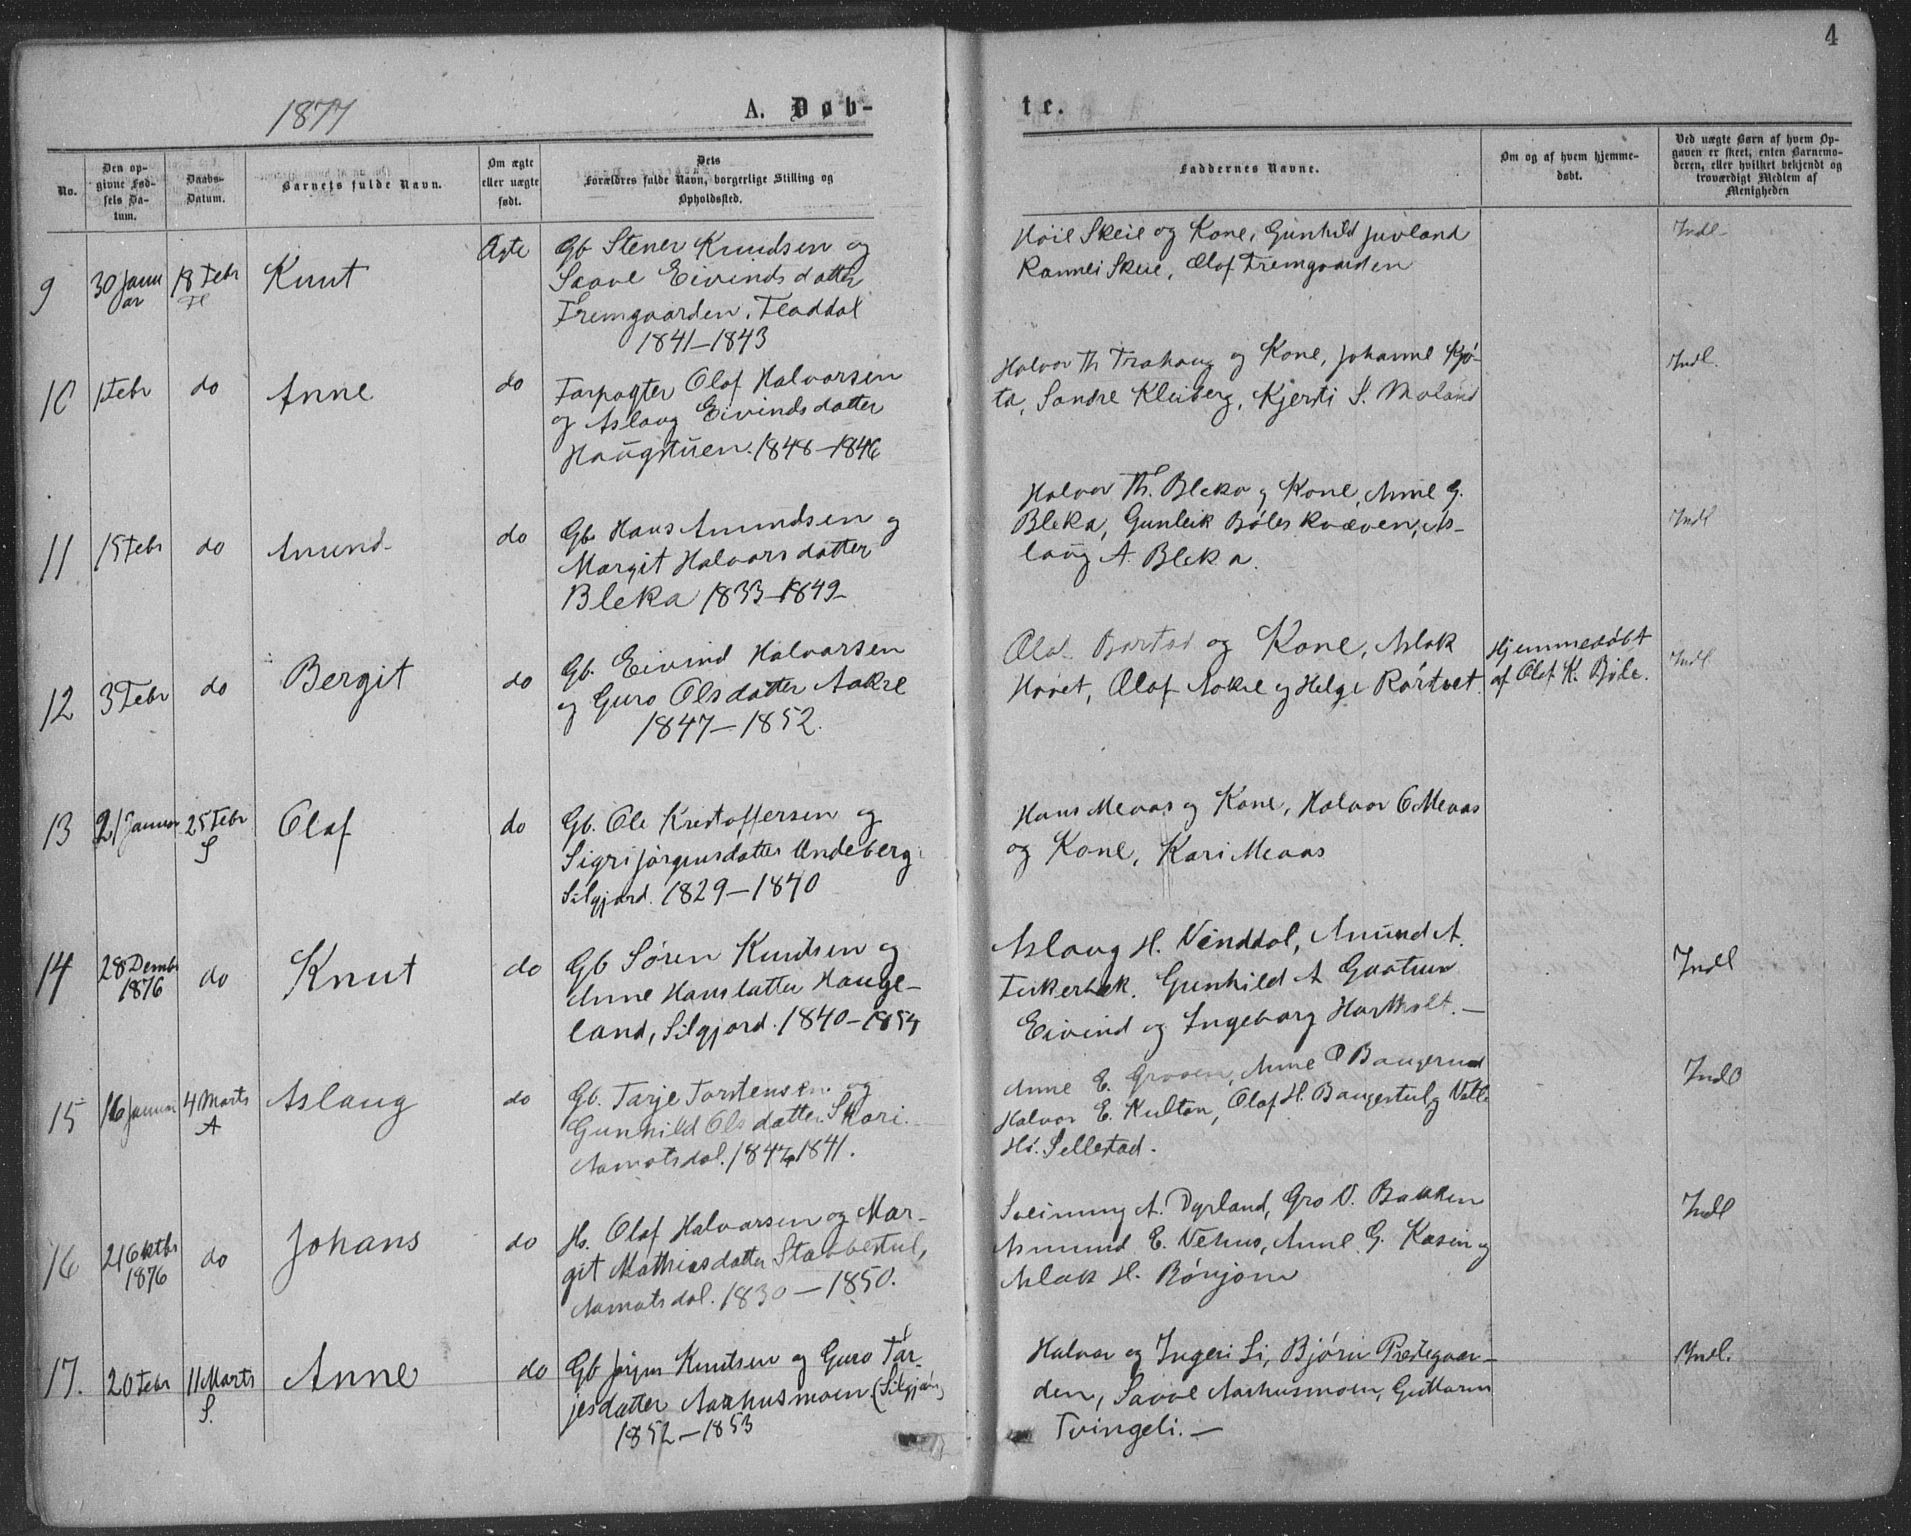 4
1877
A. Døb-
te.
No.
Den op-
givne Fød-
sels Da-
tum.
Daabs-
Datum.
Barnets fulde Navn.
Om ægte
eller uægte
født.
Dets
Forældres fulde Navn, borgerlige Stilling og
Opholdssted.
Faddernes Navne.
Om og af hvem hjemme-
døbt.
Ved uægte Børn af hvem Op-
gaven er skeet, enten Barnemo-
deren, eller hvilket bekjendt og
troværdigt Medlem af
Menigheden
9
30 Janu
ar
18 Febr
Fl
Knut
Ægte
Gb Stener Knudsen og
Saave Eivindsdatter
Fremgaarden. Fladdal
1841-1843
Høie Skeie og Kone, Gunhild Juvland
Rannei Skeie, Olaf Fremgaarden
Indl
10
1 Febr
do
Anne
do
Olaf Halvorsen
og Aslaug Eivindsdatter
Haugstuen. 1848-1846
Halvor Th Trahaug og Kone, Johanne Kjø-
ta, Sondre Kleiberg, Kjersti S. Moland
Indl.
11
15 Febr
do
Amund
do
Gb. Hans Amundsen og
Margit Halvorsdatter
Bleka 1833-1849
Halvor Th. Bleka og Kone, Anne G.
Bleka, Gunleik Bøleskvæven, As-
laug A. Bleka.
Indl
12
3 Febr
do
Bergit
do
Gb. Eivind Halvorsen
og Guro Olsdatter Aakre
1847-1852.
Olaf og Kone, Aslak
Hovet, Olaf Aakre og Helge Rørtvet.
Hjemmedøbt
af Olaf K. Bøle.
Indl
13
21 Januar
25 Febr
S
Olaf
do
Gb. Ole Kristoffersen og
Sigri Jørgensdatter Undeberg
Silgjord. 1829-1840
Hans Mevas og Kone, Halvor O Mevas
og Kone, Kari Mevas
14
28 Dembr
1876
do
Knut
do
Gb Søren Knudsen og
Anne Hansdatter Hauge-
land, Silgjord. 1840-1854
Aslaug H. Vinddal, Amund A.
Gunhild A
Eivind og Ingeborg
Indl
15
16 Januar
4 Marts
A
Aslaug
do
Gb. Tarje Torstensen og
Gunhild Olsdatter Skori.
Aamotsdal. 1841.
Anne E. Anne O Baugerud
Halvor E. Kultan, Olaf H. Baugestul og
Hs. Sellestad.
Indl
16
21 Oktbr
1876
do
Johans
do
Hs. Olaf Halvorsen og Mar-
git Mathiasdatter Stabbestul,
Aamotsdal. 1830-1850.
Sveinung A. Dyrland, Gro V. Bakken
Asmund E. Vehus, Anne G. Kasin og
Aslak H. Rønjom
Indl
17.
20 Febr
11 Marts
S.
Anne
do
Gb Jørgen Knutsen og Guro Tar-
jesdatter Aarhusmoen (Silgjord)
1852-1853
Halvor og Ingeri Li, Bjørn Prestegaar-
den, Saave Aarhusmoen, Guttorm
Tvingeli.-
Indl.